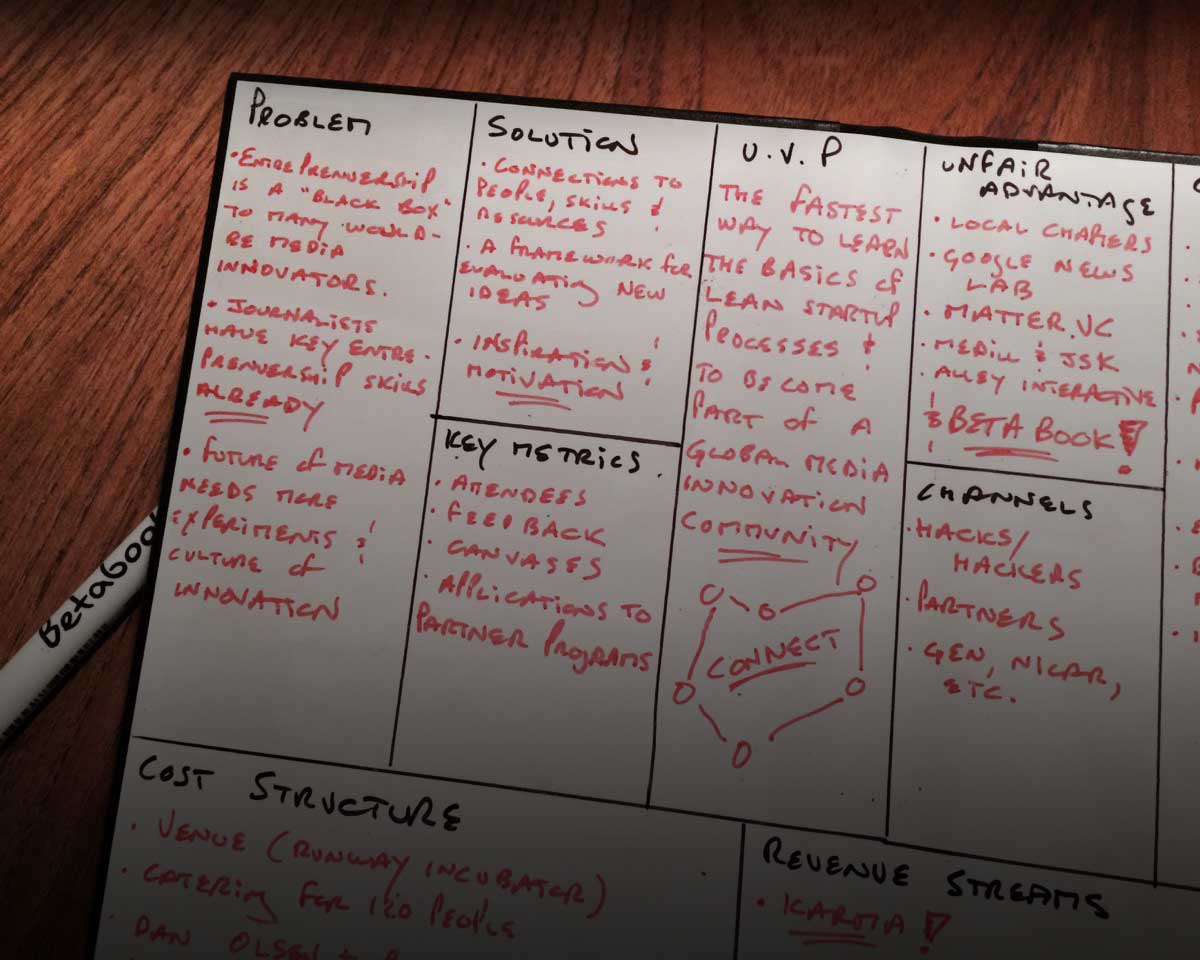 PROBLEM
• ENTREPRENNERSHIP
IS A "BLACK BOX"
TO MANY WOULD-
BE MEDIA
INNOVATORS.
• JOURNALISTS
HAVE KEY ENTRE-
PRENNERSHIP SKILLS
ALREADY
• FUTURE of MEDIA
NEEDS MORE
EXPERIMENTS &
CULTURE of
INNOVATION
SOLUTION
• CONNECTIONS TO
PEOPLE, SKILLS &
RESOURCES
• A FRAMEWORK FOR
EVALUATING NEW
IDEAS
• INSPIRATION &
MOTIVATION
KEY METRICS.
• ATTENDEES
• FEEDBACK
• CANVASES
• APPLICATIONS TO
PARTNER PROGRAMS
U.V.P
THE FASTEST
WAY TO LEARN
THE BASICS of
LEAN STARTUP
PROCESSES &
TO BECOME
PART OF A
GLOBAL MEDIA
INNOVATION
COMMUNITY
CONNECT
UNFAIR
ADVANTAGE
• LOCAL CHAPTERS
• GOOGLE NEWS
LAB
• MATTER.VC
• MEDILL & JSK
• ALLEY INTERACTIVE
& BETA BOOK!
CHANNELS
• HACKS/
HACKERS
• PARTNERS
• GEN, NICAR,
ETC.
Betaboo
COST STRUCTURE
• VENUE (RUNWAY INCUBATOR)
• CATERING FOR 120 PEOPLE
• DAN OLSEN
REVENUE STREAMS
• KARMA!